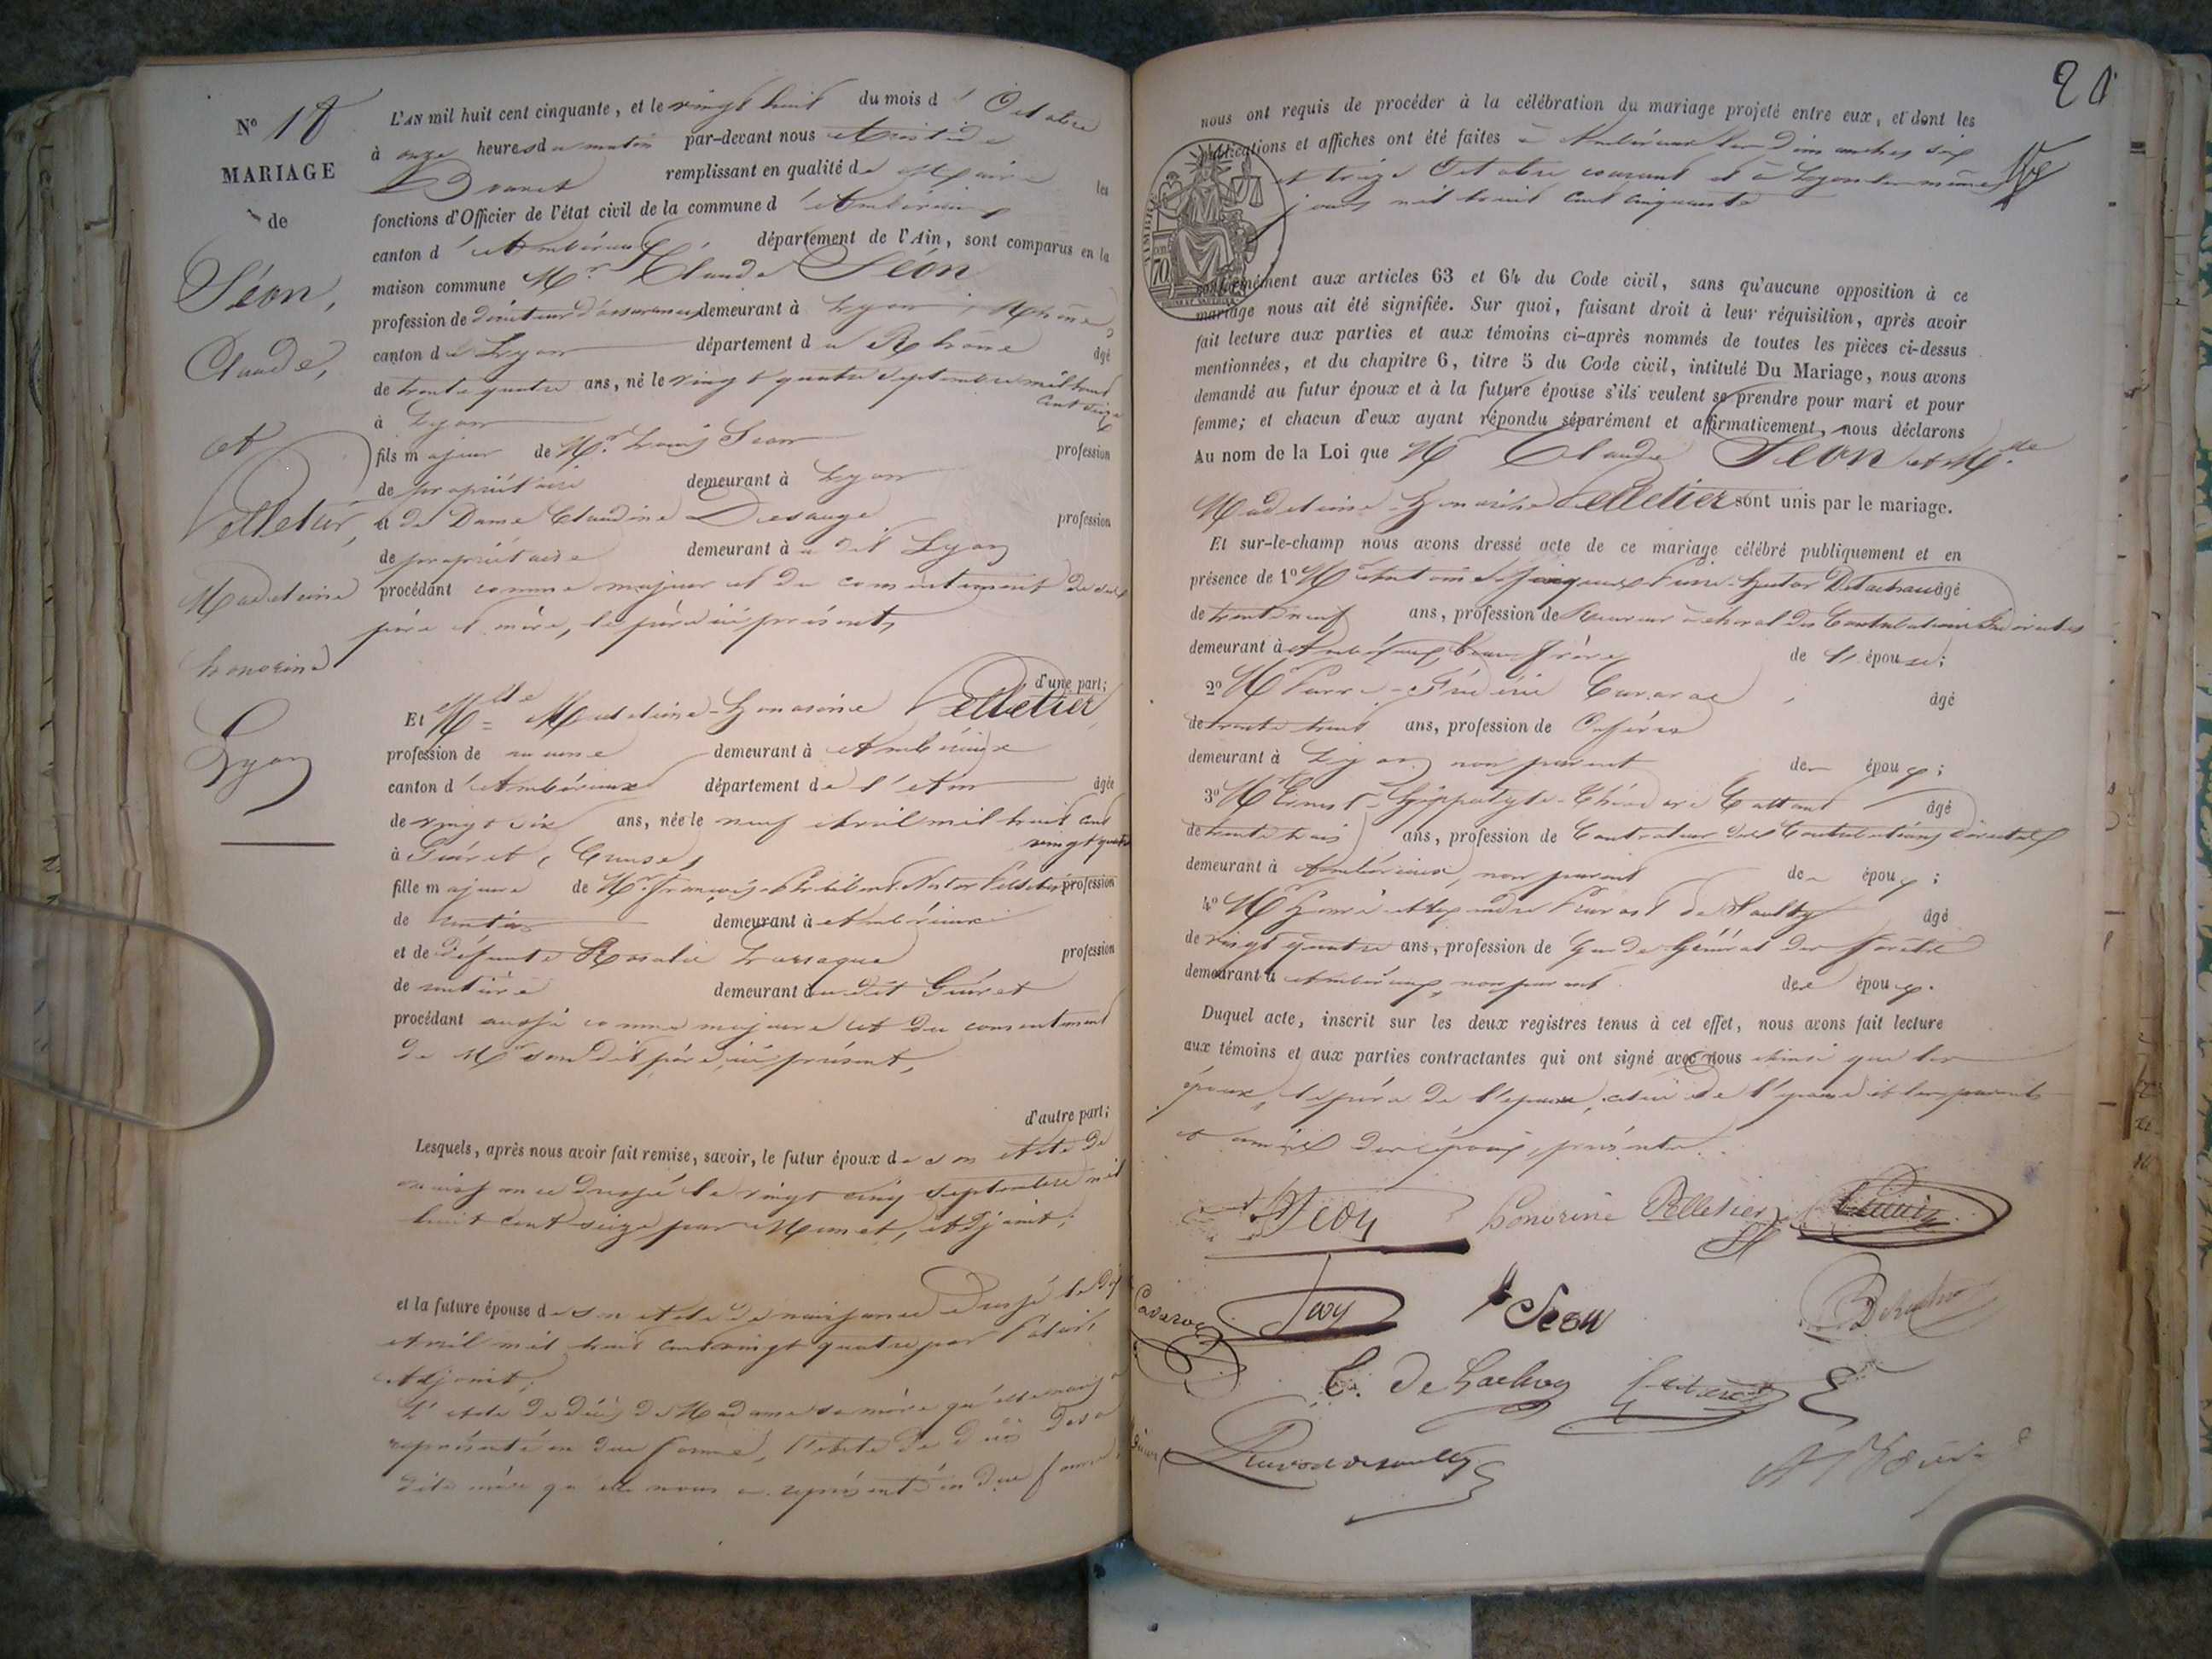 N.º 18
MARIAGE
de
Séon,
Claude,
et
Pelletier,
Madeleine
honorine
Lyon
L'AN mil huit cent cinquante, et le vingt huit du mois d' Octobre
à onze heures du matin par-devant nous Aristide
remplissant en qualité de Maire les
fonctions d'Officier de l'état civil de la commune d' Ambérieux
canton d' Ambérieux département de l'Ain, sont comparus en la
maison commune Mr. Claude Séon
profession de directeur d'assurances demeurant à Lyon, Rhône
canton de Lyon département du Rhône âgé
de trente quatre ans, né le vingt quatre septembre mil huit
cent seize
à Lyon
fils majeur de Mr. Louis Séon profession
de propriétaire demeurant à Lyon
et de Dame Claudine Desauge profession
de propriétaire demeurant à u dit Lyon
procédant comme majeur et du consentement de ses
père et mère, le père ici présent,
d'une part;
Et Mlle Madeleine-Honorine Pelletier,
profession de aucune demeurant à Ambérieux
canton d' Ambérieux département de l'Ain âgée
de vingt six ans, née le neuf Avril mil huit cent
vingt quatre
à Guéret, Creuse,
fille majeure de Mr. François-Philibert-Nestor Pelletier profession
de rentier demeurant à Ambérieux
et de défunte Rosalie profession
de rentière demeurant au dit Guéret
procédant aussi comme majeure et du consentement
de Mr son dit père, ici présent,
d'autre part;
Lesquels, après nous avoir fait remise, savoir, le futur époux de son Acte de
naissance dressé le vingt cinq septembre mil
huit cent seize par Monet, Adjoint;
et la future épouse de son Acte de naissance dressé le dix
Avril mil huit cent vingt quatre par
Adjoint;
L'Acte de décès de Madame sa mère qu'elle nous a
représenté en due forme, l'Acte de décès de sa
dite mère qu'elle nous a représenté en due forme,
20
nous ont requis de procéder à la célébration du mariage projeté entre eux, et dont les
publications et affiches ont été faites à Ambérieux les dimanches six
et treize Octobre courant et à Lyon les mêmes
jours mil huit cent cinquante
70
conformément aux articles 63 et 64 du Code civil, sans qu'aucune opposition à ce
mariage nous ait été signifiée. Sur quoi, faisant droit à leur réquisition, après avoir
fait lecture aux parties et aux témoins ci-après nommés de toutes les pièces ci-dessus
mentionnées, et du chapitre 6, titre 5 du Code civil, intitulé Du Mariage, nous avons
demandé au futur époux et à la future épouse s'ils veulent se prendre pour mari et pour
femme; et chacun d'eux ayant répondu séparément et affirmativement, nous déclarons
Au nom de la Loi que Mr Claude Séon et Mlle
Madeleine-Honorine Pelletier sont unis par le mariage.
Et sur-le-champ nous avons dressé acte de ce mariage célébré publiquement et en
présence de 1º Mr Antoine Jacques Hector âgé
de trente neuf ans, profession de Receveur à cheval des Contributions Indirectes
demeurant à Ambérieux, beau frère de l' épouse;
2º Mr Pierre-Frédéric âgé
de trente huit ans, profession de
demeurant à Lyon, non parent des époux;
3º Mr Ernest-Hippolyte-Théodore âgé
de trente trois ans, profession de Controleur des Contributions directes
demeurant à Ambérieux, non parent des époux;
4º Mr Henri Alexandre Pruvost de Saulty âgé
de vingt quatre ans, profession de Garde Général des forêts
demeurant à Ambérieux, non parent des époux.
Duquel acte, inscrit sur les deux registres tenus à cet effet, nous avons fait lecture
aux témoins et aux parties contractantes qui ont signé avec nous ainsi que les
époux, le père de l'époux, celui de l'épouse et les parents
et amis des époux, présents.
Séon honorine Pelletier
Séon
C. de
Pruvost de Saulty